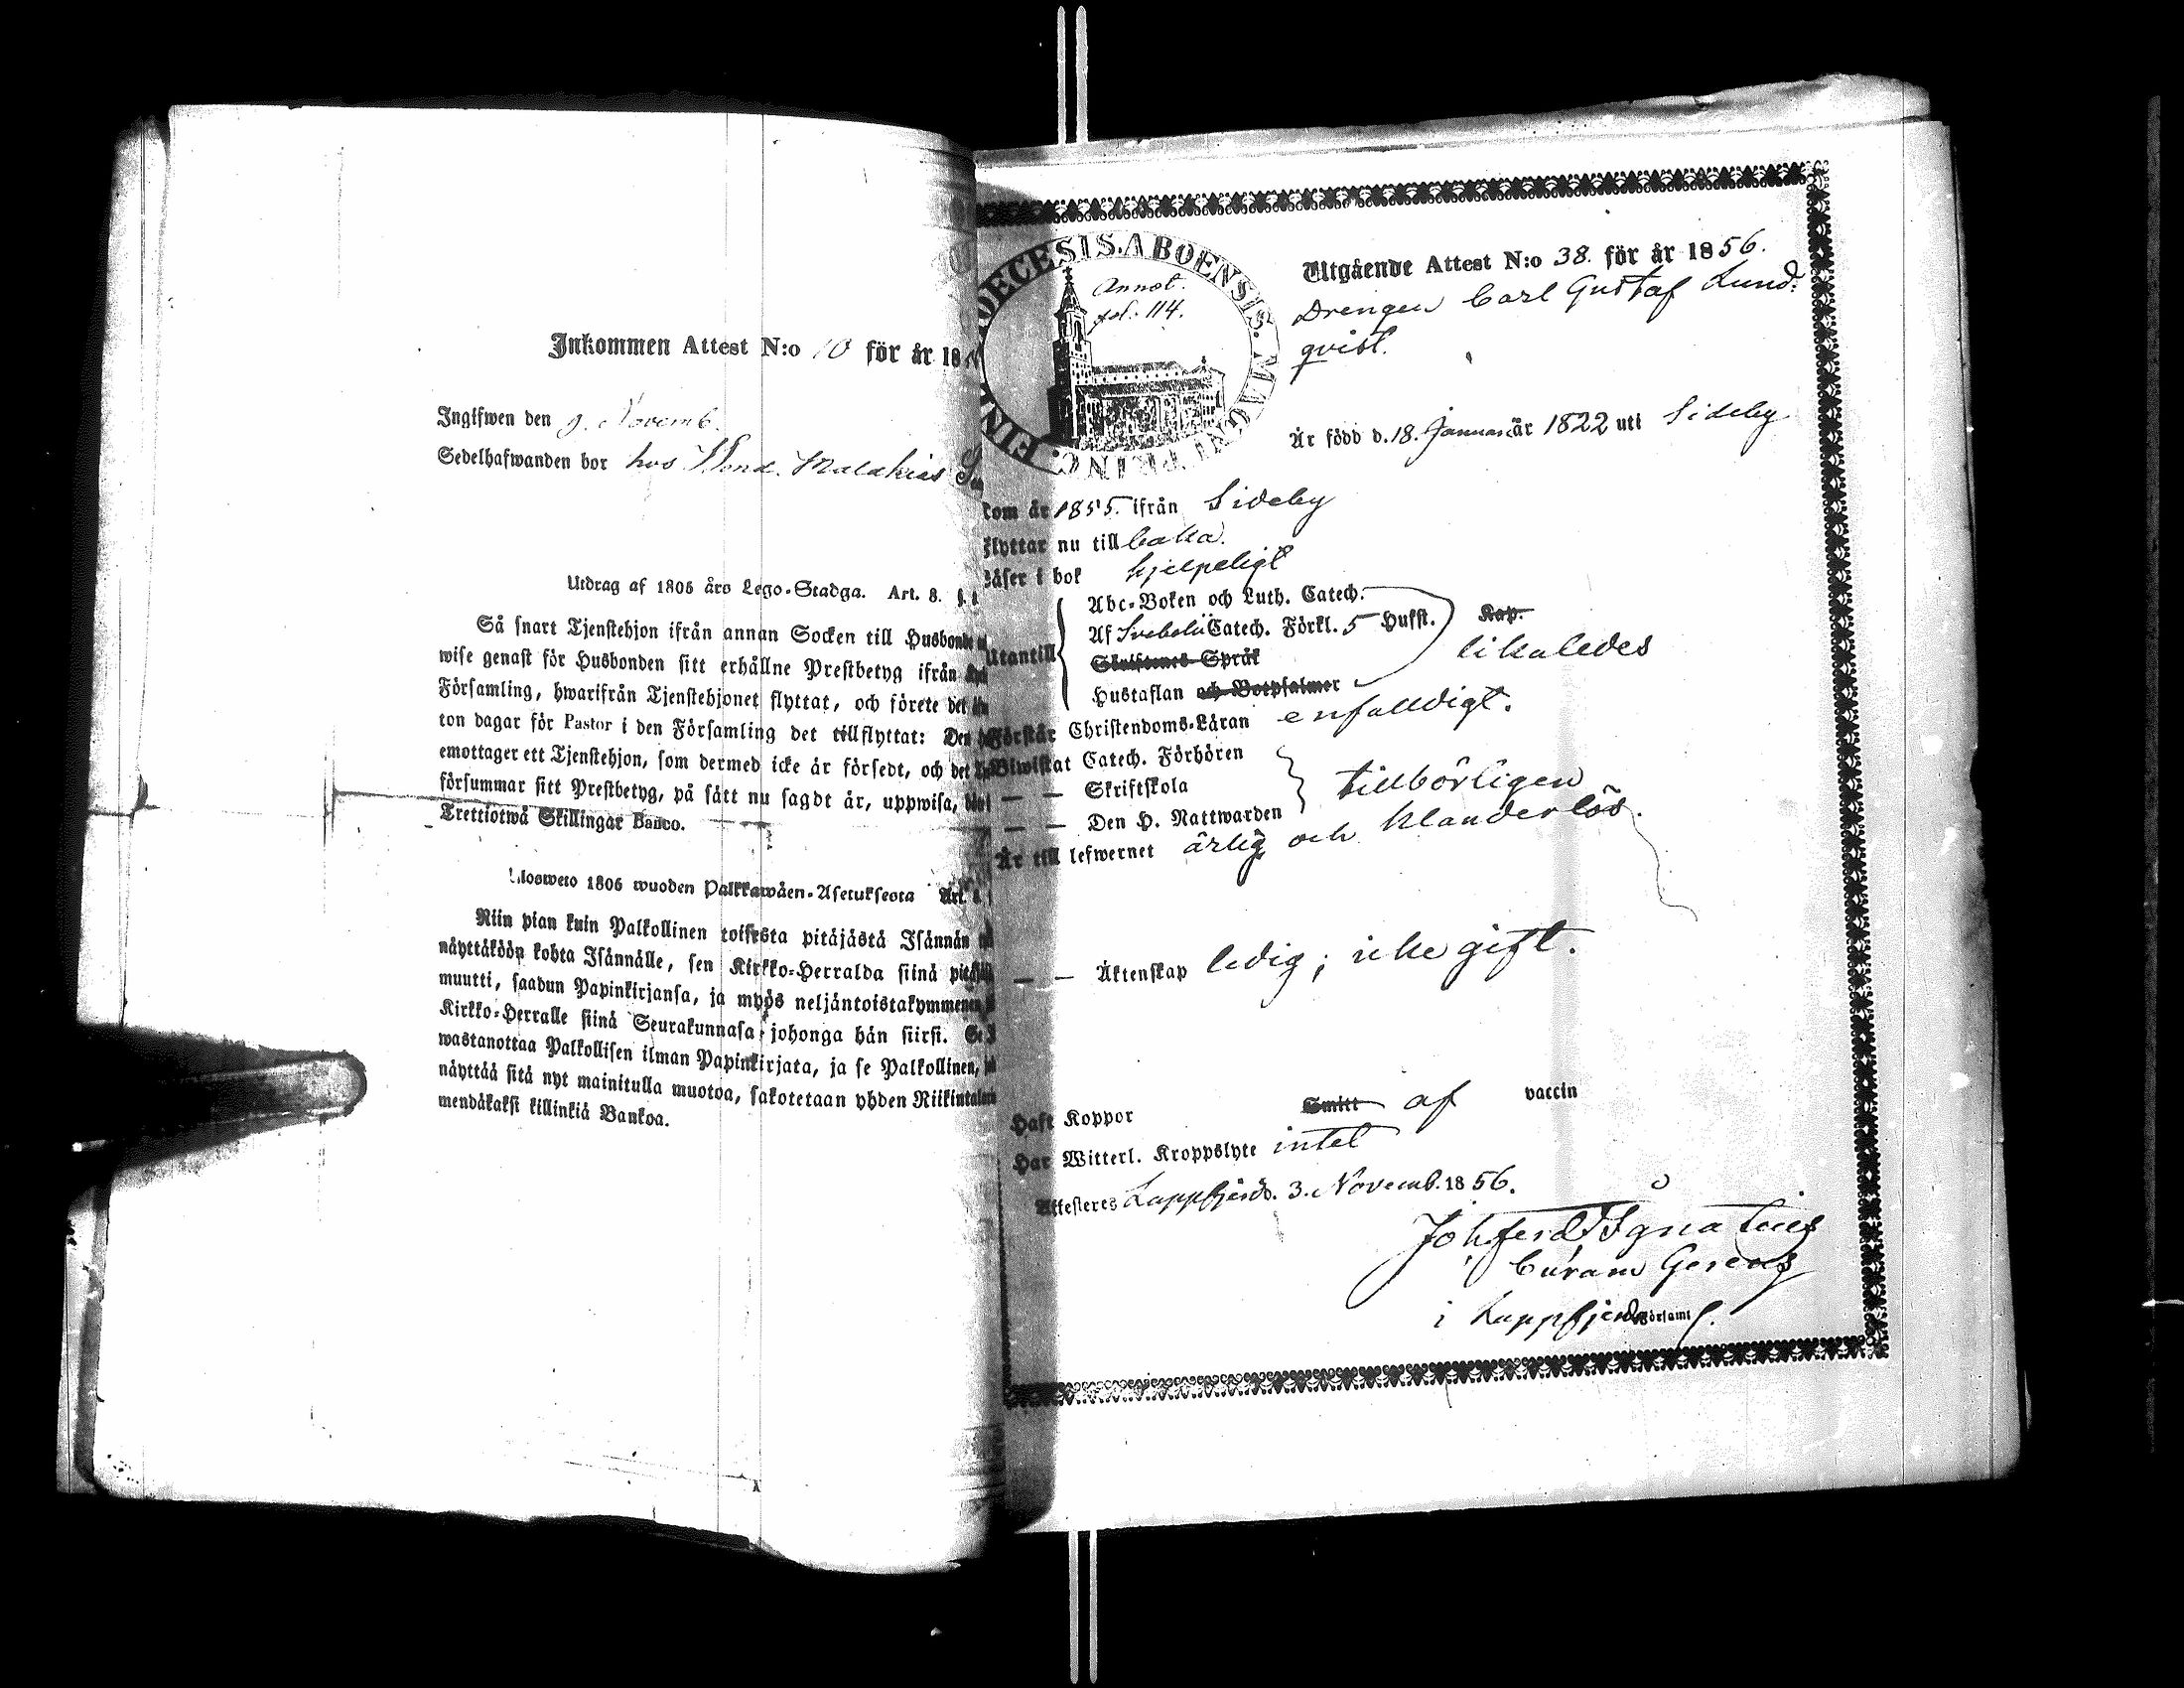 Inkommen Attest N:o 10 för år 18
Ingifwen den 9. Novemb.
Sedelhafwanden bor hos Bond. Malakias
Utdrag af 1806 års Lego-Stadga. Art. 8. §.
Så snart Tjenstehjon ifrån annan Socken till Husbonde
wise genast för Husbonden sitt erhållne Prestbetyg ifrån
Församling, hwarifrån Tjenstehjonet flyttat, och förete det
ton dagar för Pastor i den Församling det tillflyttat: Den
emottager ett Tjenstehjon, som dermed icke är försedt, och det
försummar sitt Prestbetyg, på sätt nu sagdt är, uppwisa,
Trettiotwå Skillingar Banco.
Ulosweto 1806 wuoden Palkkawäen-Asetuksesta Art. 8.
Niin pian kuin Palkollinen toisesta pitäjästä Isännän
näyttäköön kohta Isännälle, sen Kirkko-Herralda siinä
muutti, saadun Papinkirjansa, ja myös neljäntoistakymmenen
Kirkko-Herralle siinä Seurakunnasa, johonga hän siirsi.
wastanottaa Palkollisen ilman Papinkirjata, ja se Palkollinen,
näyttää sitä nyt mainitulla muotoa, sakotetaan yhden
mendäkaksi killinkiä Bankoa.
DECESIS. ABOENSIS. MAGNI PRINC. FINL
Annot.
fol. 114.
Utgående Attest N:o 38. för år 1856.
Drengen Carl Gustaf Lund-
qvist.
Är född d. 18. Januari är 1822 uti Sideby
kom år 1855. ifrån Sideby
flyttar nu till baka.
Läser i bok hjelpeligt
Utantill
Abc-Boken och Luth. Catech.
Af Svebelii Catech. Förkl. 5 Hufst. Kap.
Skriftenes Språk
likaledes
Hustaflan och Botpsalmer
Förstår Christendoms-Läran enfalldigt.
Biwistat Catech. Förhören
— — Skriftskola
tillbörligen
— — Den H. Nattwarden
Är till lefwernet ärlig och klanderlös.
— — Äktenskap ledig; icke gift.
Haft Koppor Smitt af vaccin
Har Witterl. Kroppslyte intet
Attesteres Lappfjerd d. 3. Novemb. 1856.
Joh. Ferd. Ignatius
Curam Gerens
i Lappfjerds Församl.